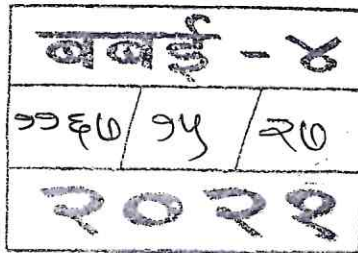 बबई - ४
११६७/१५/२७
२०२१